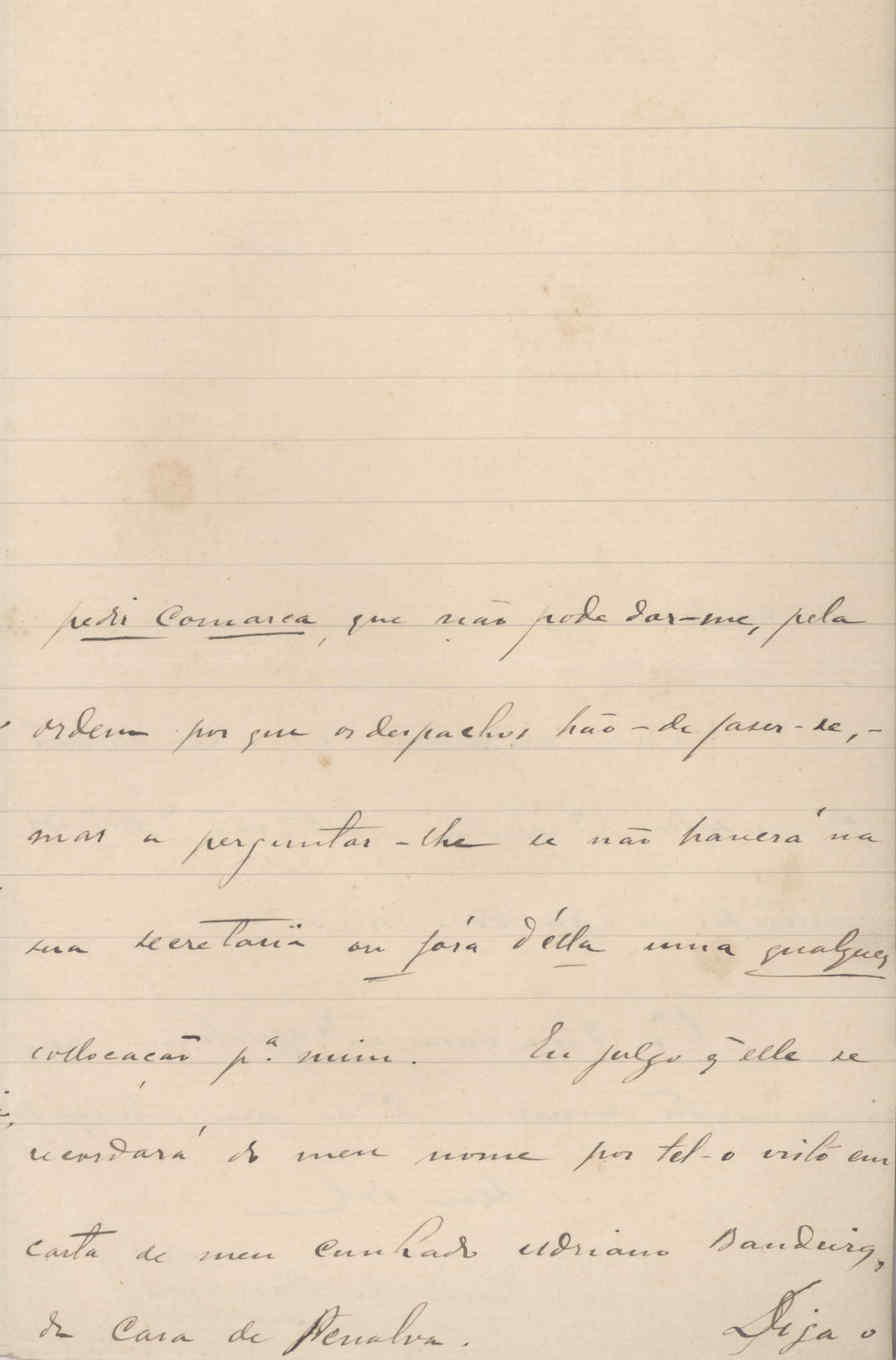 pedir comarca, que não pode dar-me, pela
ordem por que os despachos hão-de faser-se, -
mas a perguntar-lhe se não haverá na
sua secretaria ou fóra d'élla uma qualquer
collocação p.ª mim. Eu julgo q̃ elle se
recordará do meu nome por tel-o visto em
carta de meu cunhado Adriano Bandeira,
da Casa de Penalva. Diga o